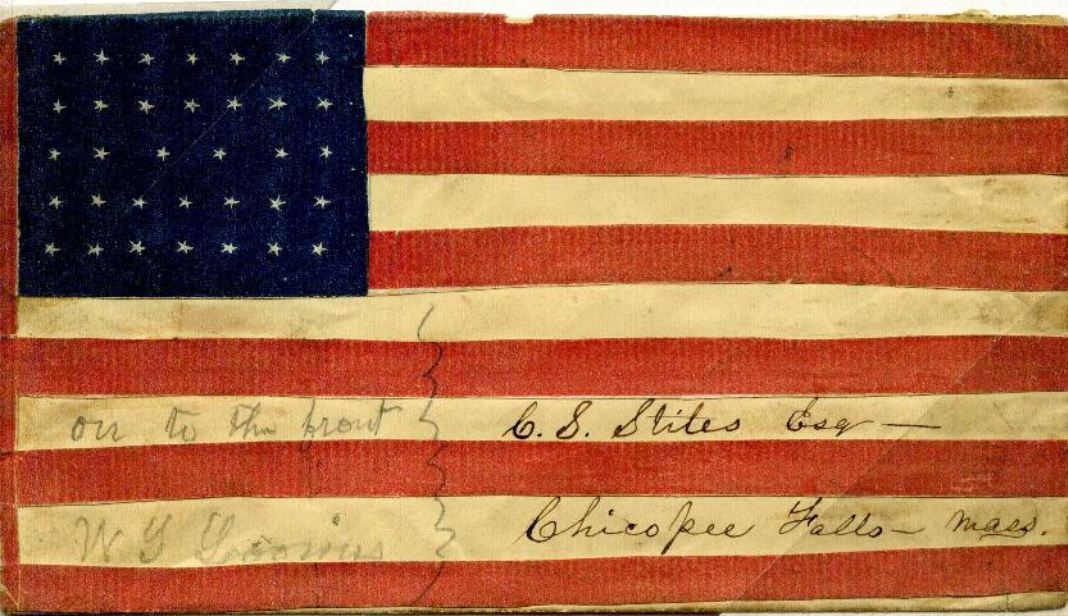 on to the front
W G
C. S. Stiles Esq —
Chicopee Falls – Mass.